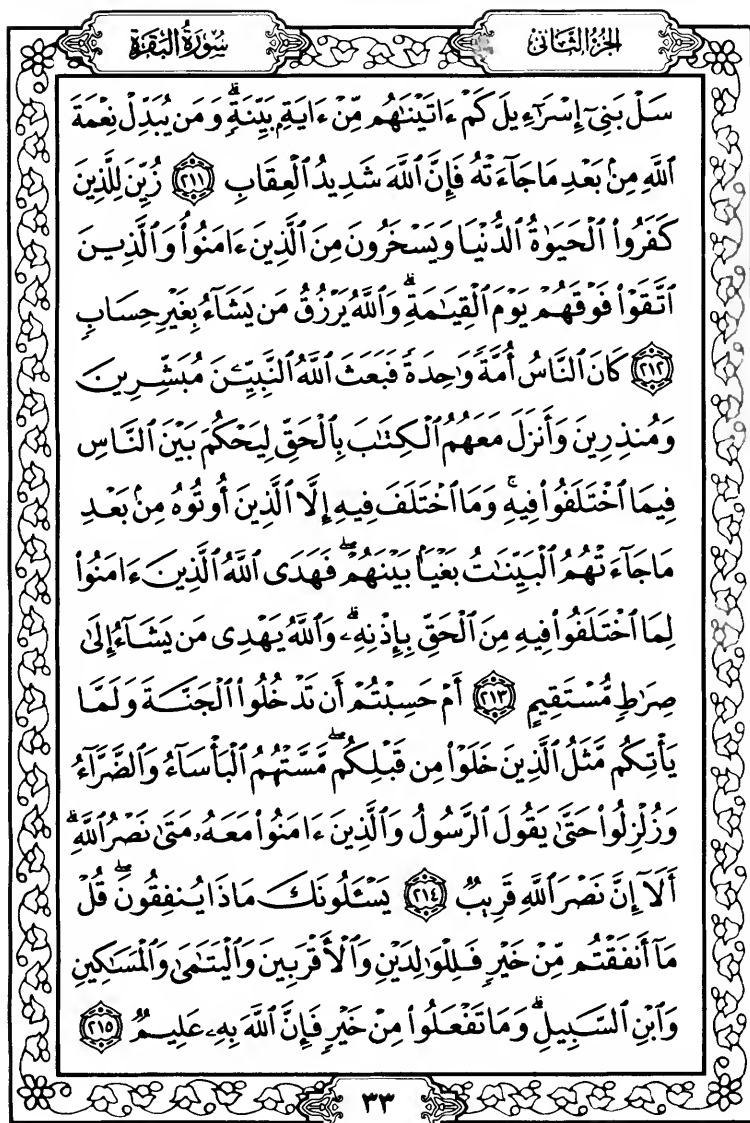 الجزء الثاني
سورة البقرة
سَلْ بَنِىٓ إِسْرَٰٓءِيلَ كَمْ ءَاتَيْنَٰهُم مِّنْ ءَايَةِۭ بَيِّنَةٍۗ وَمَن يُبَدِّلْ نِعْمَةَ
ٱللَّهِ مِنۢ بَعْدِ مَا جَآءَتْهُ فَإِنَّ ٱللَّهَ شَدِيدُ ٱلْعِقَابِ ٢١١ زُيِّنَ لِلَّذِينَ
كَفَرُوا۟ ٱلْحَيَوٰةُ ٱلدُّنْيَا وَيَسْخَرُونَ مِنَ ٱلَّذِينَ ءَامَنُوا۟ وَٱلَّذِينَ
ٱتَّقَوْا۟ فَوْقَهُمْ يَوْمَ ٱلْقِيَٰمَةِۗ وَٱللَّهُ يَرْزُقُ مَن يَشَآءُ بِغَيْرِ حِسَابٍ
٢١٢ كَانَ ٱلنَّاسُ أُمَّةً وَٰحِدَةً فَبَعَثَ ٱللَّهُ ٱلنَّبِيِّـۧنَ مُبَشِّرِينَ
وَمُنذِرِينَ وَأَنزَلَ مَعَهُمُ ٱلْكِتَٰبَ بِٱلْحَقِّ لِيَحْكُمَ بَيْنَ ٱلنَّاسِ
فِيمَا ٱخْتَلَفُوا۟ فِيهِۚ وَمَا ٱخْتَلَفَ فِيهِ إِلَّا ٱلَّذِينَ أُوتُوهُ مِنۢ بَعْدِ
مَا جَآءَتْهُمُ ٱلْبَيِّنَٰتُ بَغْيًۢا بَيْنَهُمْۖ فَهَدَى ٱللَّهُ ٱلَّذِينَ ءَامَنُوا۟
لِمَا ٱخْتَلَفُوا۟ فِيهِ مِنَ ٱلْحَقِّ بِإِذْنِهِۦۗ وَٱللَّهُ يَهْدِى مَن يَشَآءُ إِلَىٰ
صِرَٰطٍ مُّسْتَقِيمٍ ٢١٣ أَمْ حَسِبْتُمْ أَن تَدْخُلُوا۟ ٱلْجَنَّةَ وَلَمَّا
يَأْتِكُم مَّثَلُ ٱلَّذِينَ خَلَوْا۟ مِن قَبْلِكُمۖ مَّسَّتْهُمُ ٱلْبَأْسَآءُ وَٱلضَّرَّآءُ
وَزُلْزِلُوا۟ حَتَّىٰ يَقُولَ ٱلرَّسُولُ وَٱلَّذِينَ ءَامَنُوا۟ مَعَهُۥ مَتَىٰ نَصْرُ ٱللَّهِۗ
أَلَآ إِنَّ نَصْرَ ٱللَّهِ قَرِيبٌ ٢١٤ يَسْـَٔلُونَكَ مَاذَا يُنفِقُونَۖ قُلْ
مَآ أَنفَقْتُم مِّنْ خَيْرٍ فَلِلْوَٰلِدَيْنِ وَٱلْأَقْرَبِينَ وَٱلْيَتَٰمَىٰ وَٱلْمَسَٰكِينِ
وَٱبْنِ ٱلسَّبِيلِۗ وَمَا تَفْعَلُوا۟ مِنْ خَيْرٍ فَإِنَّ ٱللَّهَ بِهِۦ عَلِيمٌ ٢١٥
٣٣